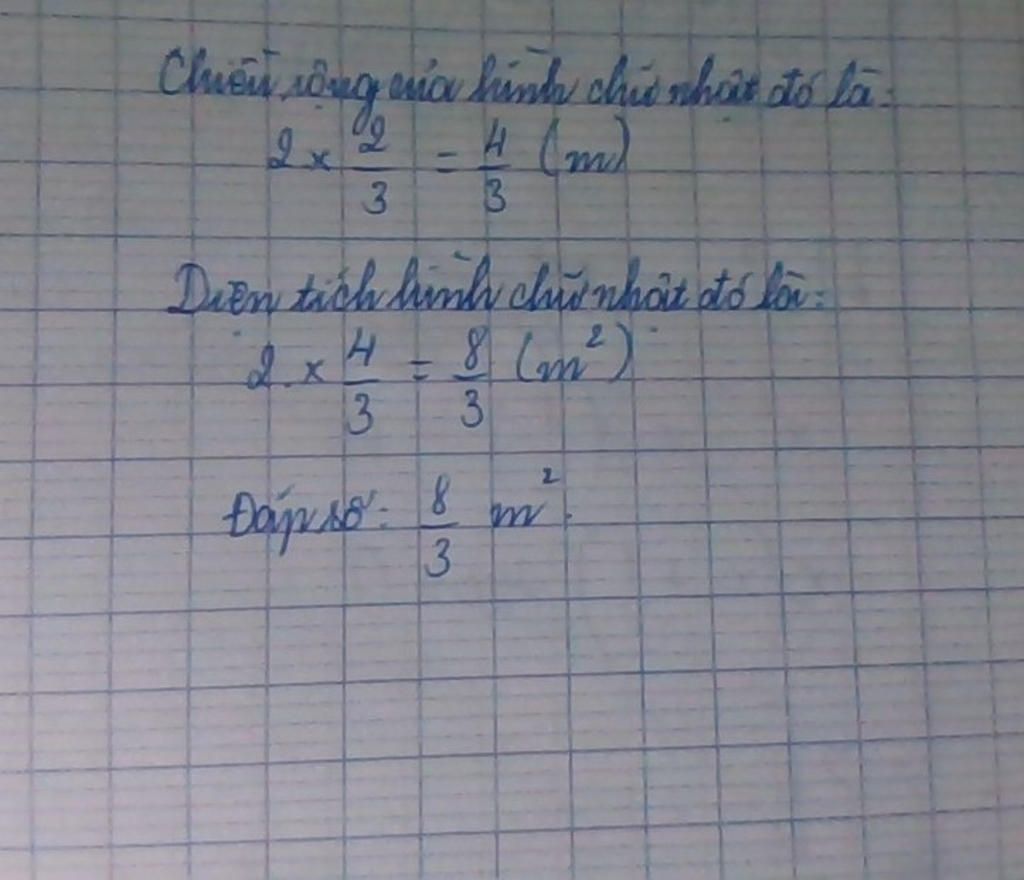 Chiều rộng của hình chữ nhật đó là:
2 × 2/3 = 4/3 (m)
Diện tích hình chữ nhật đó là:
2 × 4/3 = 8/3 (m²)
Đáp số: 8/3 m².